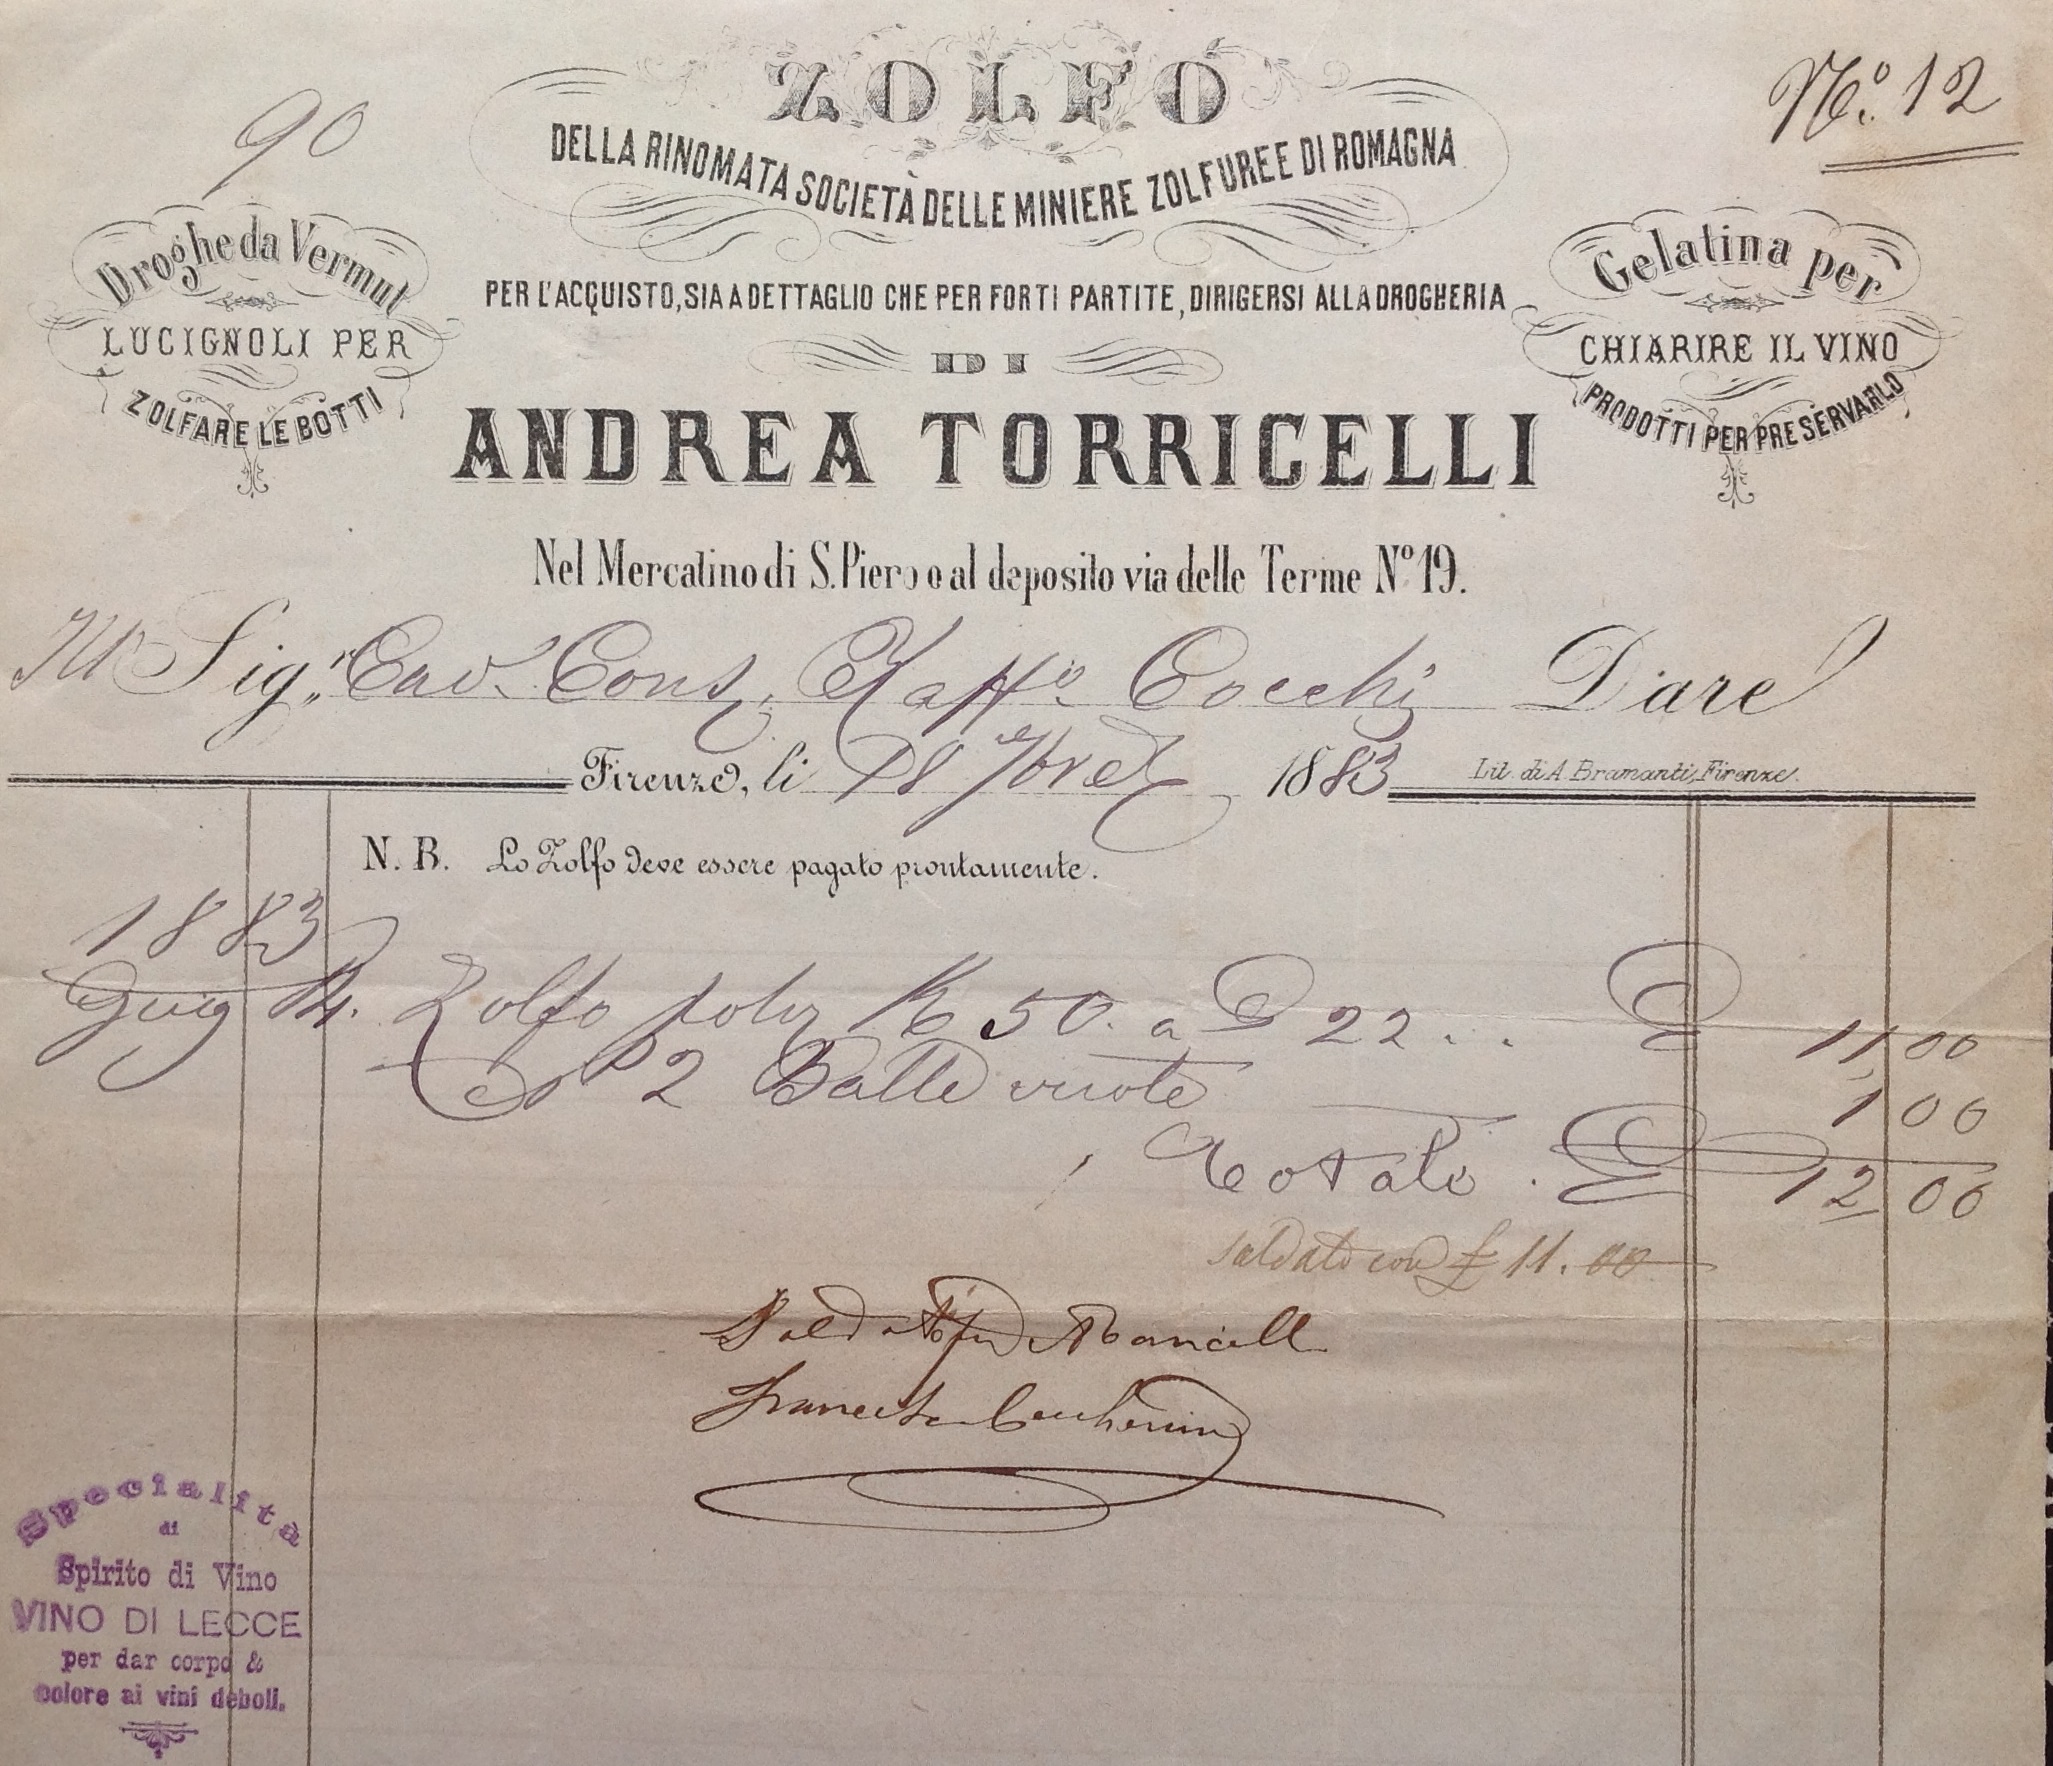 90
N.º 12
ZOLFO
DELLA RINOMATA SOCIETÀ DELLE MINIERE ZOLFUREE DI ROMAGNA
Droghe da Vermut
LUCIGNOLI PER
ZOLFARE LE BOTTI
Gelatina per
CHIARIRE IL VINO
PRODOTTI PER PRESERVARLO
PER L'ACQUISTO, SIA A DETTAGLIO CHE PER FORTI PARTITE, DIRIGERSI ALLA DROGHERIA
DI
ANDREA TORRICELLI
Nel Mercatino di S. Piero o al deposito via delle Terme Nº 19.
Sig.r Cav. Cocchi Dare
Firenze, li 18 1883
Lit. di A. Bramanti, Firenze.
N. B. Lo Zolfo deve essere pagato prontamente.
1883
Giug Zolfo K 50. a £ 22 . . £ 11,00
2 Balle vuote 1,00
Totale . £ 12,00
saldato con £ 11.00
Specialità
di
Spirito di Vino
VINO DI LECCE
per dar corpo &
colore ai vini deboli.